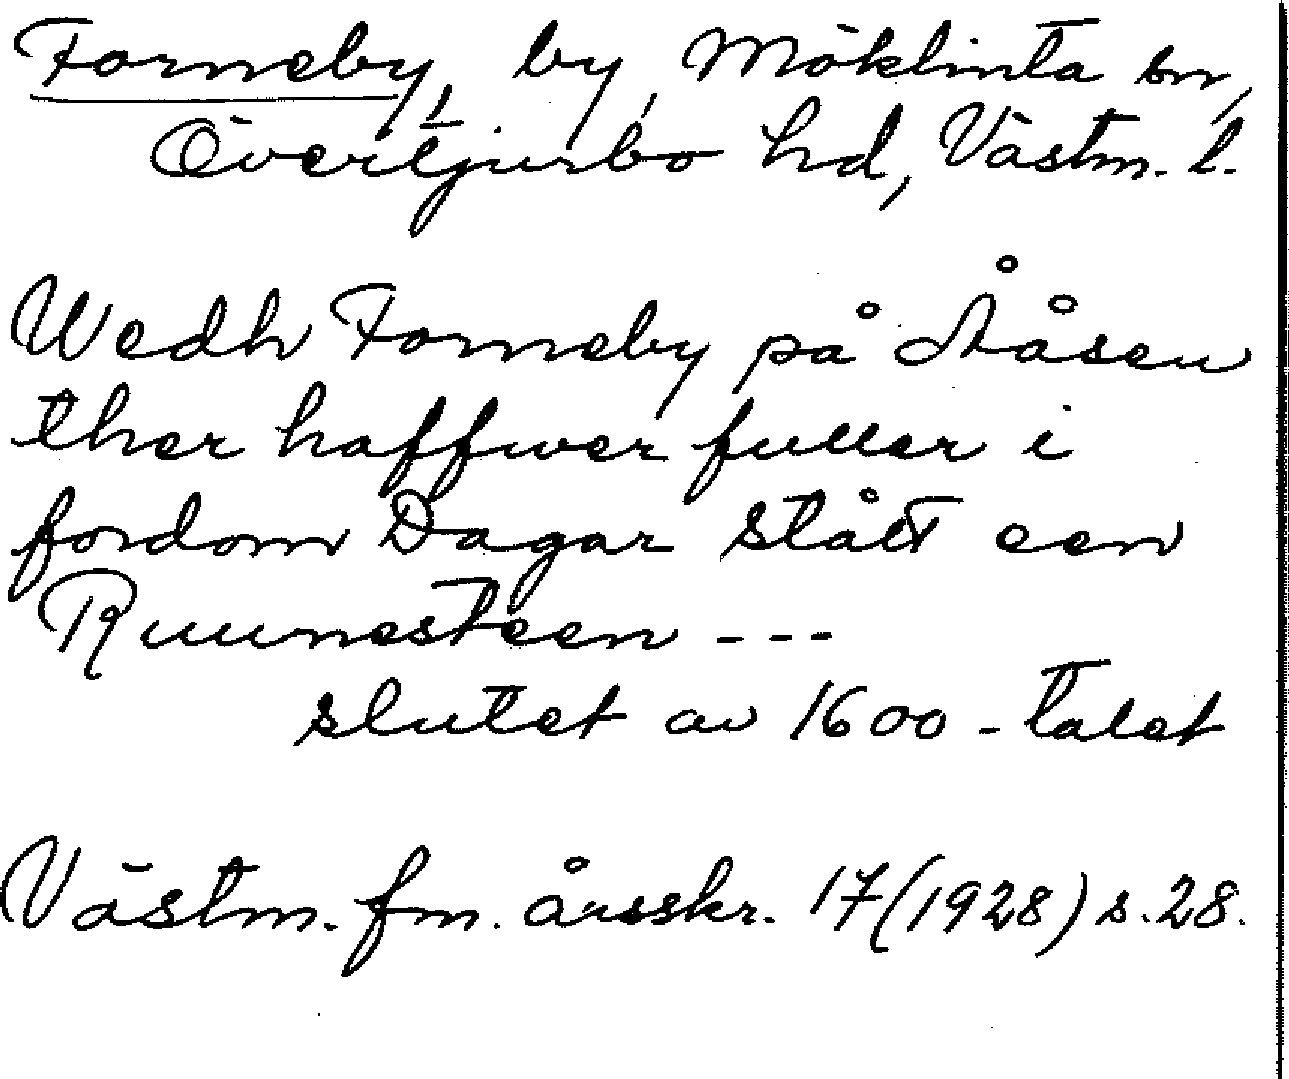 Forneby, by, Möklinta sn,
Övertjurbo hd, Västm. l.
Wedh Forneby på Ååsen
ther haffwer fuller i
fordom Dagar stått een
Ruunesteen ---
slutet av 1600-talet
Västm. fm. årsskr. 17(1928) s. 28.